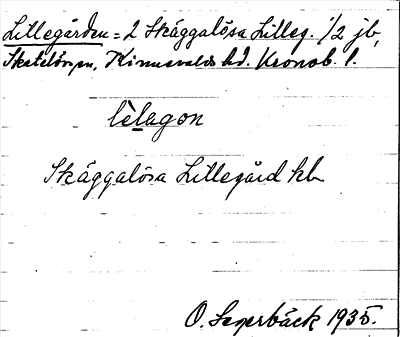 Lillegården = 2 Skäggalösa Lilleg. 1/2 jb,
Skatelövs sn, Kinnevalds hd. Kronob. l.
lèlagon
Skäggalösa Lillegård hb
O. Segerbäck 1935.